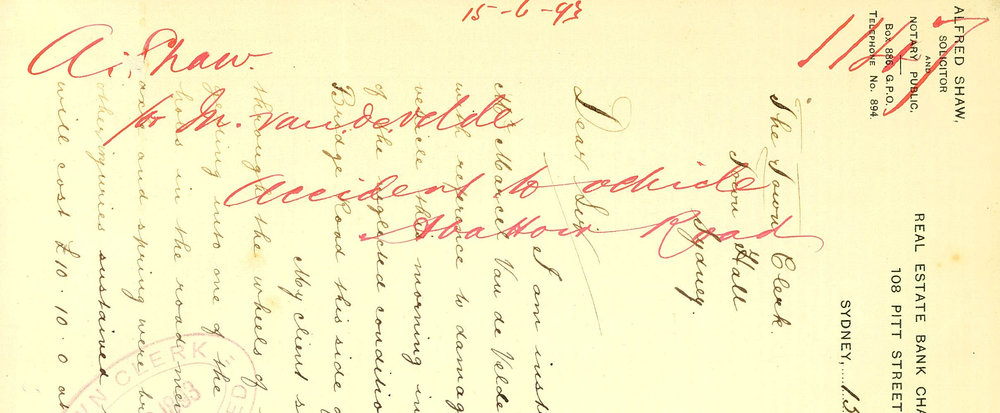 15-6-93
A. Shaw.
to M. Vandevelde
Accident to vehicle
Abattoir Road
ALFRED SHAW,
SOLICITOR
AND
NOTARY PUBLIC.
BOX 886 G.P.O.
TELEPHONE No. 894.
REAL ESTATE BANK CHA
108 PITT STREET
SYDNEY, 15
The Town Clerk.
Town Hall
Sydney.
Dear Sir
I am inst
Mr Marcel Van de Velde
with reference to damag
vehicle this morning in
of the neglected conditio
Bridge Road this side o
My client s
through the wheels of
getting into one of the
holes in the road
and spring were
other injuries sustained
will cost £10.10.0
N CLERK
1893